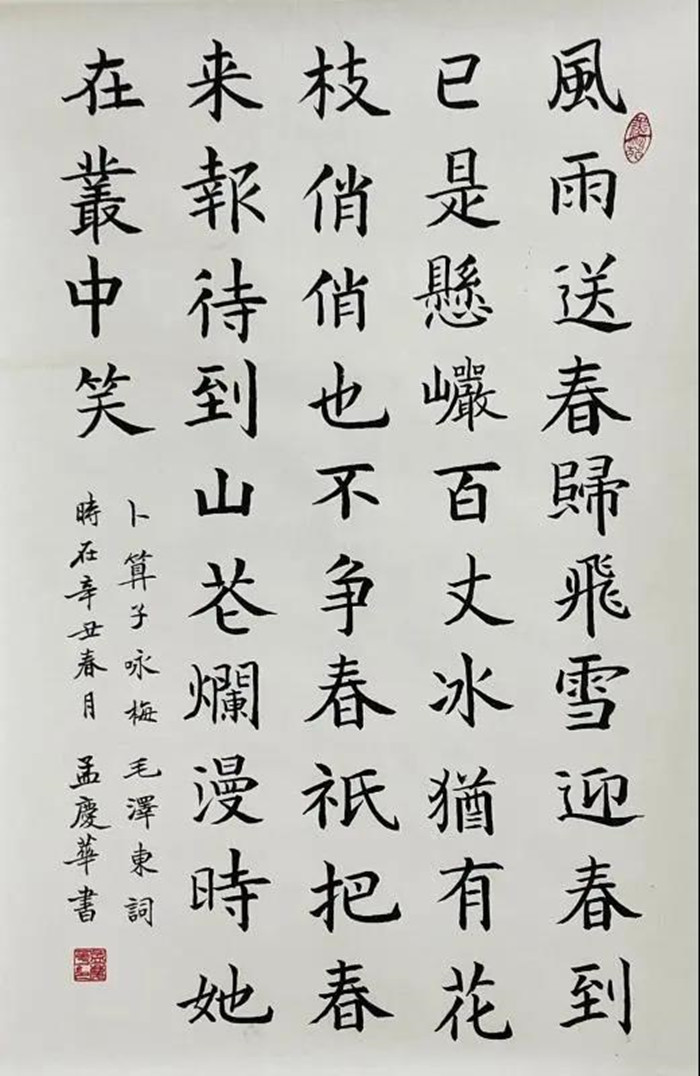 風雨送春歸飛雪迎春到
已是懸巖百丈冰猶有花
枝俏俏也不争春祇把春
来報待到山花爛漫時她
在叢中笑
卜算子咏梅 毛澤東詞
時在辛丑春月 孟慶華書